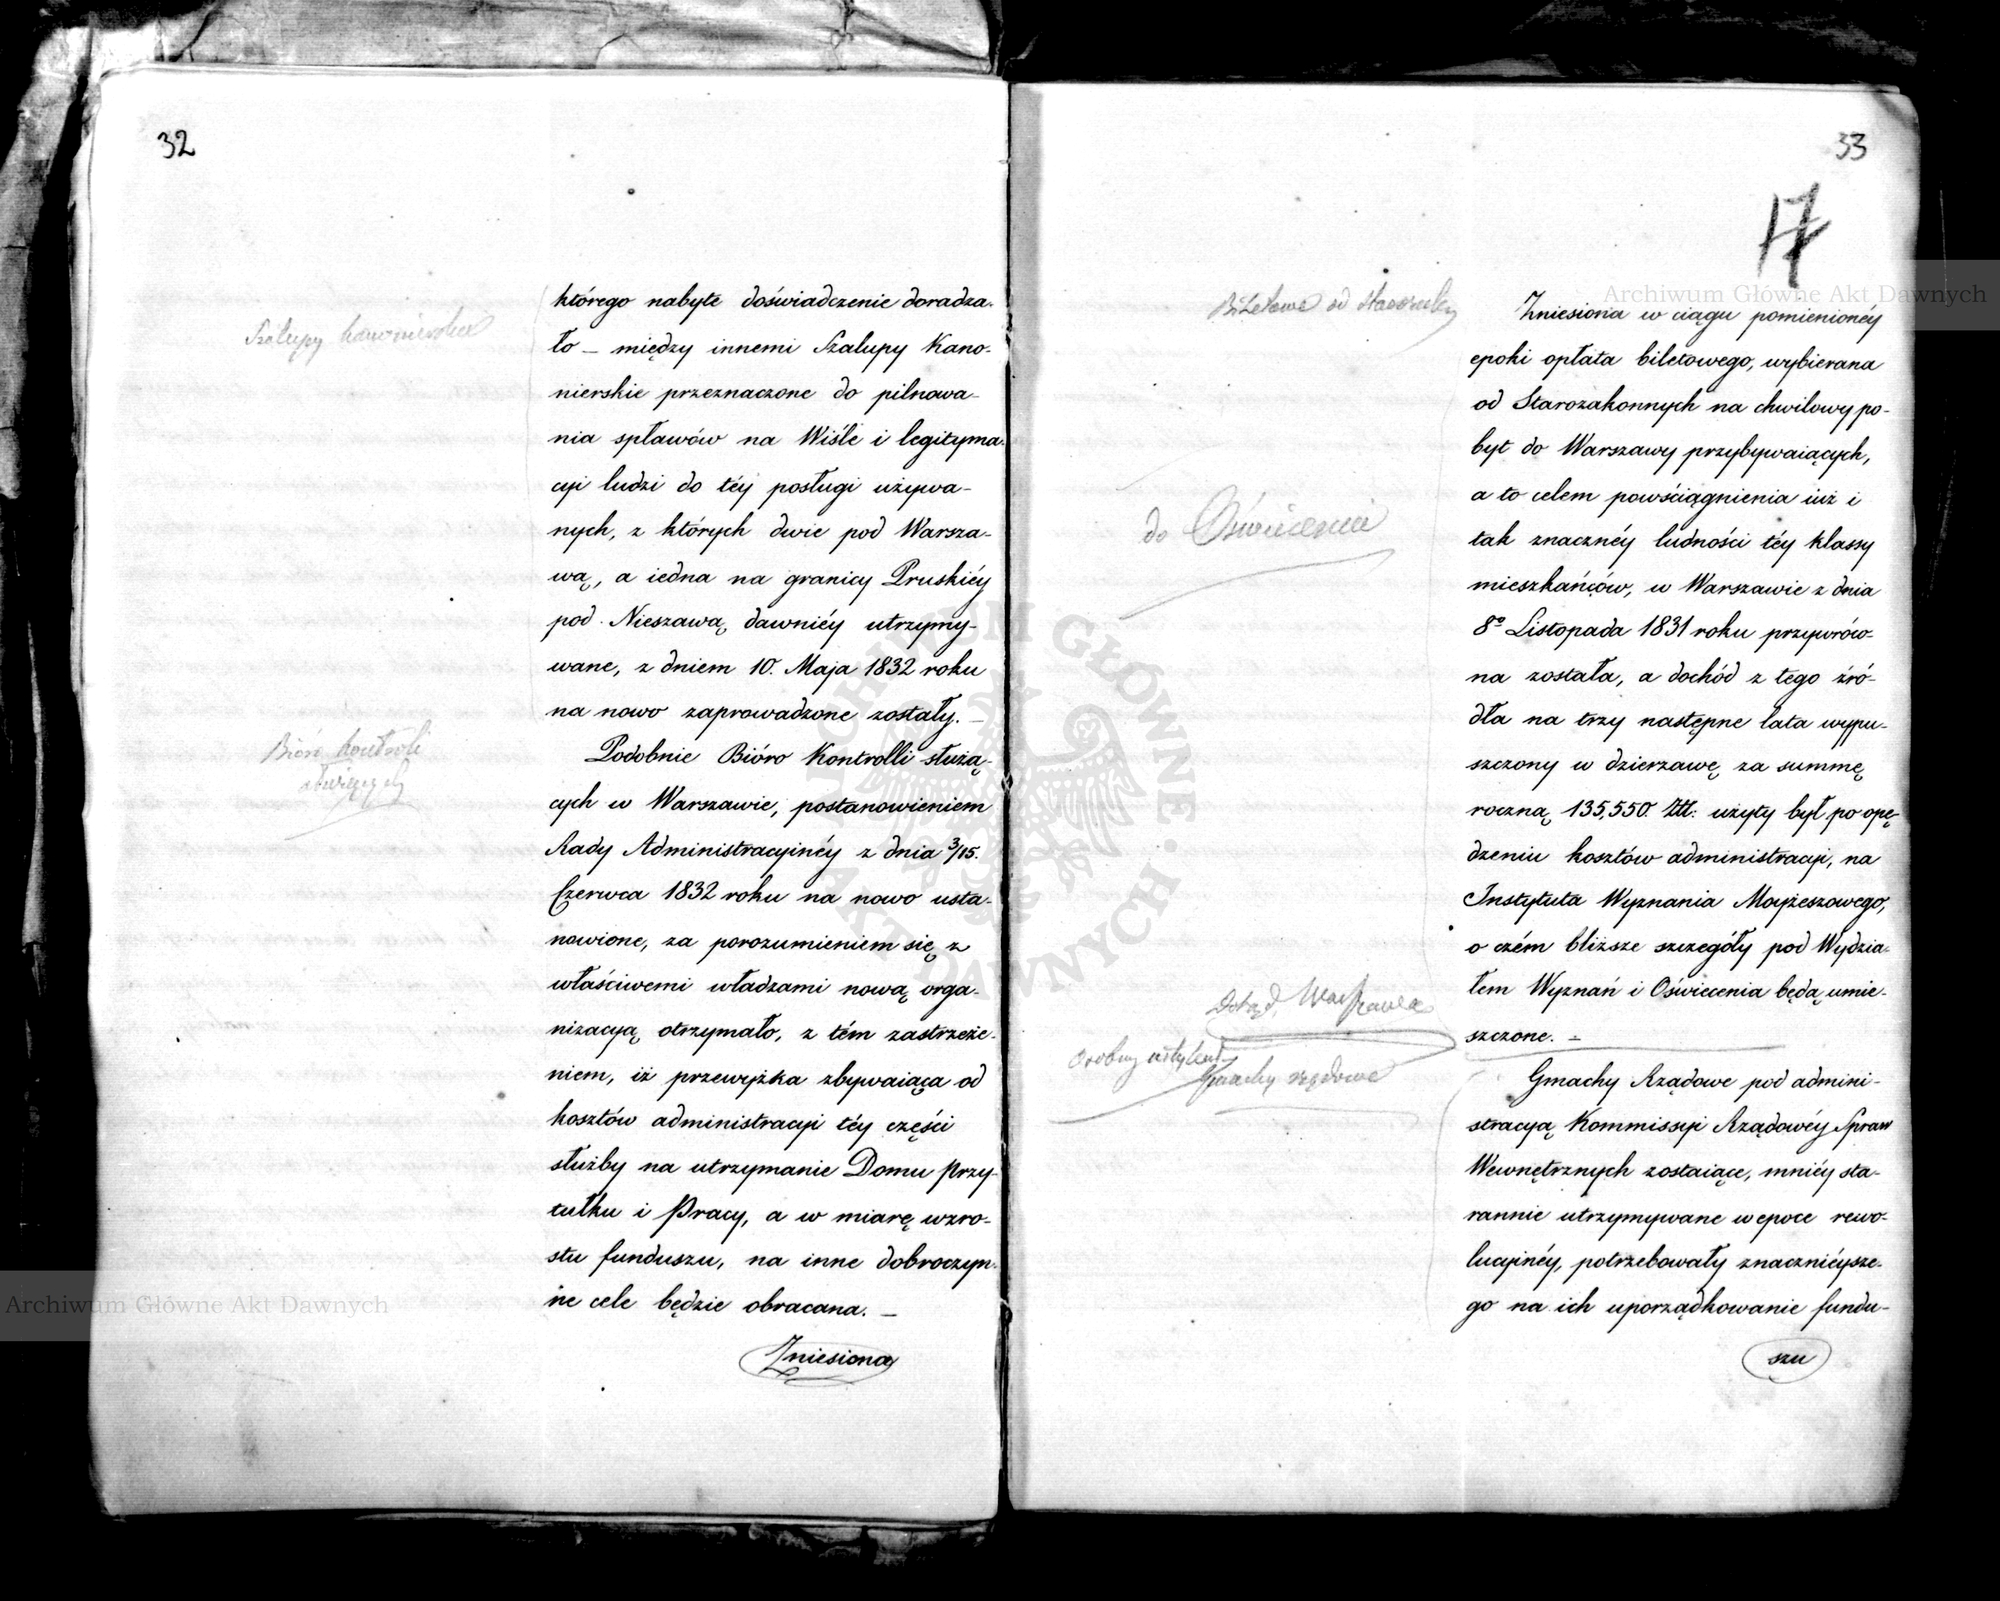 32
Szalupy kanonierskie
którego nabyte doświadczenie doradza-
ło — między innemi Szalupy Kano-
nierskie przeznaczone do pilnowa-
nia spławów na Wiśle i legityma-
cyi ludzi do téy posługi używa-
nych, z których dwie pod Warsza-
wą, a iedna na granicy Pruskiéy
pod Nieszawą, dawniéy utrzymy-
wane, z dniem 10. Maja 1832 roku
na nowo zaprowadzone zostały. —
Bióro kontroli
służących
Podobnie Bióro Kontrolli służą-
cych w Warszawie, postanowieniem
Rady Administracyinéy z dnia 3/15.
Czerwca 1832 roku na nowo usta-
nowione, za porozumieniem się z
właściwemi władzami nową orga-
nizacyą otrzymało, z tém zastrzeże-
niem, iż przewyżka zbywaiąca od
kosztów administracyi téy części
służby na utrzymanie Domu Przy-
tułku i Pracy, a w miarę wzro-
stu funduszu, na inne dobroczyn-
ne cele będzie obracana. —
Zniesiona
33
17
Biletowe od Starozak
Zniesiona w ciągu pomienionéy
epoki opłata biletowego, wybierana
od Starozakonnych na chwilowy po-
byt do Warszawy przybywaiących,
a to celem powściągnienia iuż i
do Oświecenia
tak znacznéy ludności téy klassy
mieszkańców, w Warszawie z dnia
8º Listopada 1831 roku przywróco-
na została, a dochód z tego źró-
dła na trzy następne lata wypu-
szczony w dzierzawę za summę
roczną 135,550. Złt: użyty był po opę-
dzeniu kosztów administracyi, na
Instytuta Wyznania Moyżeszowego,
o czém bliższe szczegóły pod Wydzia-
łem Wyznań i Oświecenia będą umie-
szczone. —
Warszawa
Osobny artykuł
Gmachy rządowe
Gmachy Rządowe pod admini-
stracyą Kommissyi Rządowéy Spraw
Wewnętrznych zostaiące, mniéy sta-
rannie utrzymywane w epoce rewo-
lucyinéy, potrzebowały znacznieysze-
go na ich uporządkowanie fundu-
szu
Archiwum Główne Akt Dawnych
Archiwum Główne Akt Dawnych